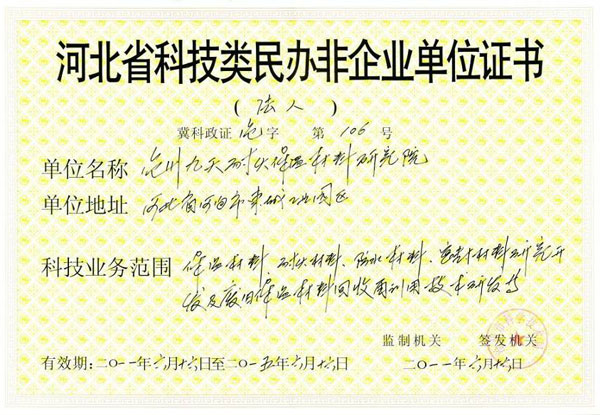 河北省科技类民办非企业单位证书
(法人)
冀科政证 沧 字 第 106 号
单位名称 九天耐火保温材料研究院
单位地址 河北省河间市东城工业园区
科技业务范围 保温材料、耐火材料、防水材料、材料研究开
发及废旧保温材料回收再利用技术研发等
监制机关 签发机关
有效期:二〇一一年六月十六日至二〇一五年六月十六日 二〇一一年六月十六日